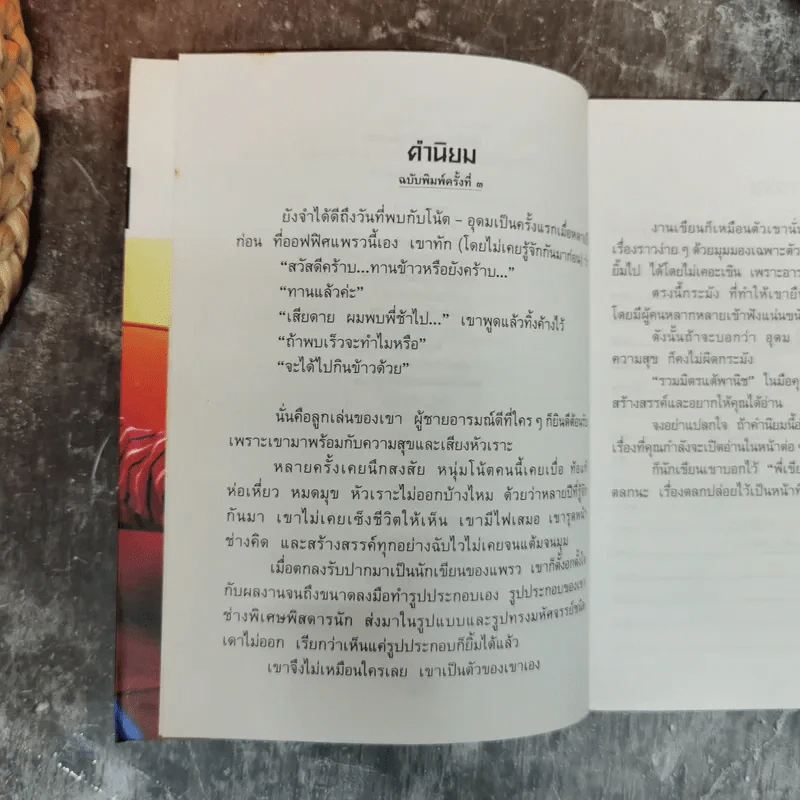 คำนิยม
ฉบับพิมพ์ครั้งที่ ๓
ยังจำได้ดีถึงวันที่พบกับโน้ต – อุดมเป็นครั้งแรกเมื่อหลายปี
ก่อน ที่ออฟฟิศแพรวนี้เอง เขาทัก (โดยไม่เคยรู้จักกันมาก่อน)
“สวัสดีคร้าบ...ทานข้าวหรือยังคร้าบ...”
“ทานแล้วค่ะ”
“เสียดาย ผมพบพี่ช้าไป...” เขาพูดแล้วทิ้งค้างไว้
“ถ้าพบเร็วจะทำไมหรือ”
“จะได้ไปกินข้าวด้วย”
นั่นคือลูกเล่นของเขา ผู้ชายอารมณ์ดีที่ใคร ๆ ก็ยินดีต้อนรับ
เพราะเขามาพร้อมกับความสุขและเสียงหัวเราะ
หลายครั้งเคยนึกสงสัย หนุ่มโน้ตคนนี้เคยเบื่อ ท้อแท้
ห่อเหี่ยว หมดมุข หัวเราะไม่ออกบ้างไหม ด้วยว่าหลายปีที่รู้จัก
กันมา เขาไม่เคยเซ็งชีวิตให้เห็น เขามีไฟเสมอ เขารุดหน้า
ช่างคิด และสร้างสรรค์ทุกอย่างฉับไวไม่เคยจนแต้มจนมุม
เมื่อตกลงรับปากมาเป็นนักเขียนของแพรว เขาก็ตั้งอกตั้งใจ
กับผลงานจนถึงขนาดลงมือทำรูปประกอบเอง รูปประกอบของเขา
ช่างพิเศษพิสดารนัก ส่งมาในรูปแบบและรูปทรงมหัศจรรย์ชนิด
เดาไม่ออก เรียกว่าเห็นแค่รูปประกอบก็ยิ้มได้แล้ว
เขาจึงไม่เหมือนใครเลย เขาเป็นตัวของเขาเอง
งานเขียนก็เหมือนตัวเขานั่น
เรื่องราวง่าย ๆ ด้วยมุมมองเฉพาะตัว
ยิ้มไป ได้โดยไม่เคอะเขิน เพราะอาร
ตรงนี้กระมัง ที่ทำให้เขายืน
โดยมีผู้คนหลากหลายเข้าฟังแน่นขนั
ดังนั้นถ้าจะบอกว่า อุดม
ความสุข ก็คงไม่ผิดกระมัง
“รวมมิตรแต้พานิช” ในมือคุ
สร้างสรรค์และอยากให้คุณได้อ่าน
จงอย่าแปลกใจ ถ้าคำนิยมนี้อ
เรื่องที่คุณกำลังจะเปิดอ่านในหน้าต่อ ๆ
ก็นักเขียนเขาบอกไว้ “พี่เขีย
ตลกนะ เรื่องตลกปล่อยไว้เป็นหน้าที่